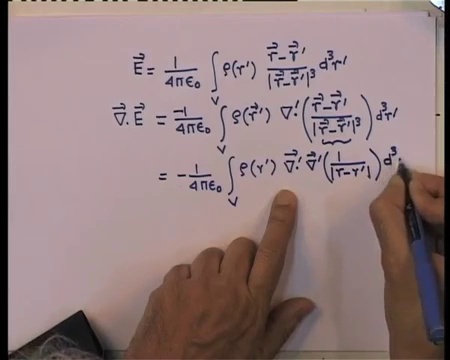 E⃗ = 1/(4πε₀) ∫_V ρ(r') (r⃗ − r⃗')/|r⃗ − r⃗'|³ d³r'
∇⃗·E⃗ = −1/(4πε₀) ∫_V ρ(r⃗') ∇⃗'·((r⃗ − r⃗')/|r⃗ − r⃗'|³) d³r'
= −1/(4πε₀) ∫_V ρ(r') ∇⃗'·∇⃗'(1/|r − r'|) d³